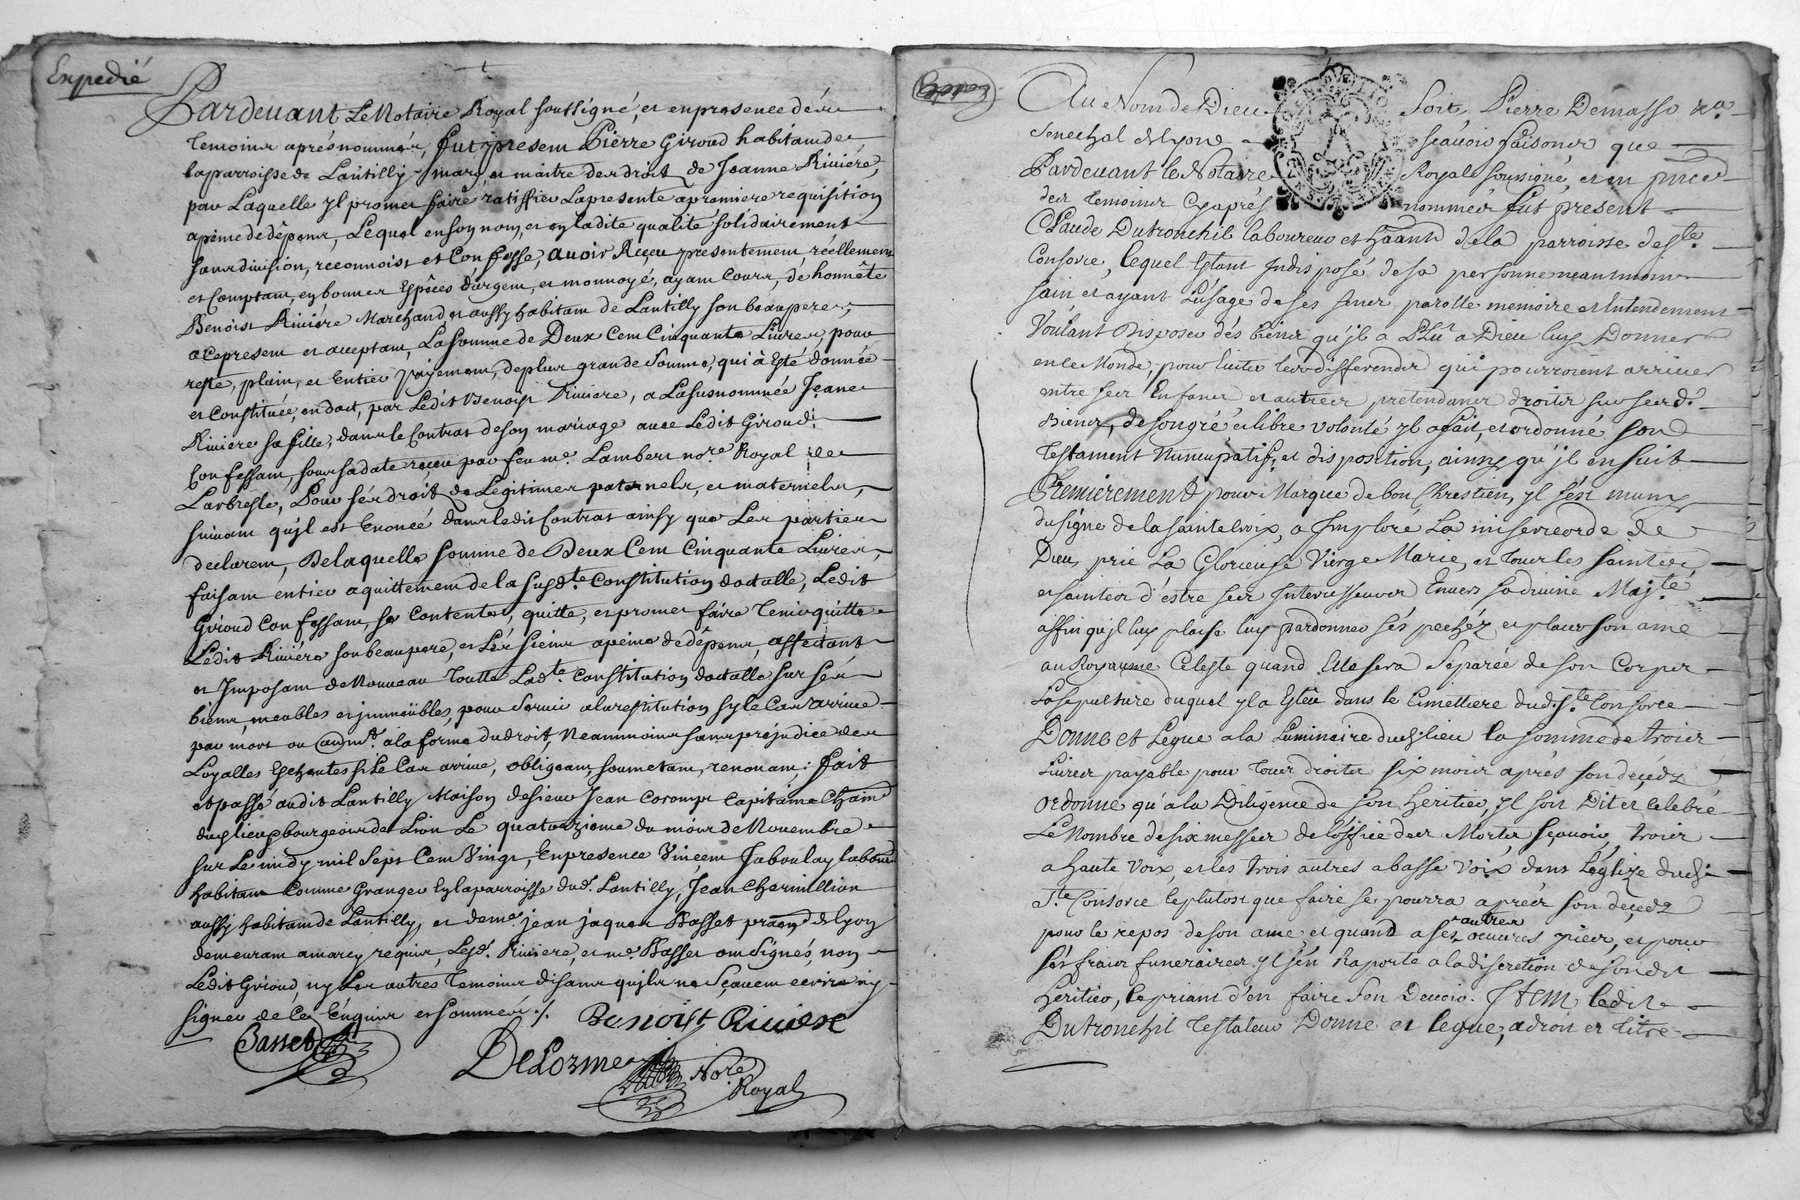 Expedié
Pardevant Le Notaire Royal soussigné, et en presence dés
temoins aprésnommés, fut présent Pierre Giroud habitand
la parroisse de Lantilly mary et maitre des droits de Jeanne Riviére,
par Laquelle yl promet faire ratiffier La presente a premiere requisition
a peine de dépens, Lequel en son nom, et en ladite qualité solidairement
sans division, reconnoist et Confesse, avoir Reçeu presentement, réellement
et Comptant, en bonnes Espéces d'argent, et monnoyé, ayant Cours, de honnéte
Benoist Riviére Marchand et aussy habitant de Lantilly son beaupere,
a ce present et acceptant, La somme de Deux Cent Cinquante Livres, pour
reste, plain, et Entier payement, de plus grande Somme, qui à Esté donnée
et Constituée, en dot, par Ledit Benoist Riviere, a La susnommée Jeane
Riviere sa fille, dans le Contrat de son mariage avec Ledit Giroud
Confessant, sous sa date reçeu par feu me. Lambert nore. Royal de
Larbresle, Pour sés droits de Legitimes paternels, et maternels,
suivant qu'il est Enoncé dans ledit Contrat ainsy que Les parties
declarent, De laquelle somme de Deux Cent Cinquante Livres,
faisant entier aquittement de la susdte. Constitution dotalle, Ledit
Giroud Confessant, se Contente, quitte, et promet faire tenir quitte
Ledit Riviére son beaupere, et Lés siens a peine de dépens, affectant
et Imposant de Nouveau toutte Ladte. Constitution dotalle sur sés
biens, meubles et jmmeubles, pour Servir a la restitution sy le Cas arrive
par mort ou autremt. a la forme du droit, Neanmoins sans préjudice des
Loyalles Exceptes si Le Cas arrive, obligeant, soumetant, renonant; fait
et passé audit Lantilly Maison de sieur Jean Corompt Capitaine Chaind
dud. lieu, bourgeois de Lion Le quatorzieme du mois de Novembre
sur Le midy mil Sept Cent Vingt, En presence Vincent Jaboulay laboureur
habitant Comme Granger En la parroisse dud. Lantilly, Jean Chermillion
aussy habitant de Lantilly, et deme. jean jaques Basset pratn. de lyon
demeurant a marcy requis, Lesd. Riviere, et me. Basset ont signés, non
Ledit Giroud, ny Les autres temoins disant qu'jls ne Sçavent ecrire ny
signer de Ce Enquis et sommés ./.
Benoist Riviere
Basset
DeLorme
Nore. Royal
Au Nom de Dieu Soit, Pierre Demasso
Senechal de Lyon sçavoir faisons que
Pardevant le Notaire Royal soussigné, et en presd
des temoins Cyaprés nommés fut present
Claude Dutronchil laboureur et hãant de la parroisse de Ste.
Consorce, lequel Estant Indisposé de sa personne neantmoins
sain et ayant L'usage de ses sens, parolle memoire et Entendement
Voulant Disposer dés biens qu'jl a Plut a Dieu luy Donner
en ce Monde, pour Eviter les differends qui pourroient arriver
entre ses Enfans et autres pretendants droits sur ses d.
Biens, de son gré et libre volonté yl a fait, et ordonné son
Testament Nuncupatif, et disposition, ainsy qu'jl ensuit
Premiérement pour Marque de bon Chrestien, yl s'est muny
du signe de la sainte Croix, a Imploré La misericorde de
Dieu, prié La Glorieuse Vierge Marie, et tous les saintes
et saintes d'estre ses Intercesseurs Envers sa divine Majté.
affin qu'jl luy plaise luy pardonner sés pechéz et placer son ame
au Royaume Celeste quand Elle sera Separée de son Corps
La sepulture duquel yl a Esleu dans le Cimettiere dud. Ste. Consorce
Donne et Legue a la Luminaire dud. lieu la somme de trois
Livres payable pour tous droits six mois aprés son decédz
ordonne qu'a la Diligence de son heritier, yl soit Dit et Celebré
Le Nombre de six messes de l'office des Morts, sçavoir, trois
a haute Voix, et les trois autres a basse Voix dans L'eglize dud.
Ste. Consorce le plutost que faire se pourra aprés son decédz
pour le repos de son ame et quand a ses autres œuvres pies, et pour
sés frais funeraires yl s'en Raporte a la discretion de sondit
heritier, le priant d'en faire Son Devoir. Item ledit
Dutronchil Testateur Donne et legue, a droit et titre